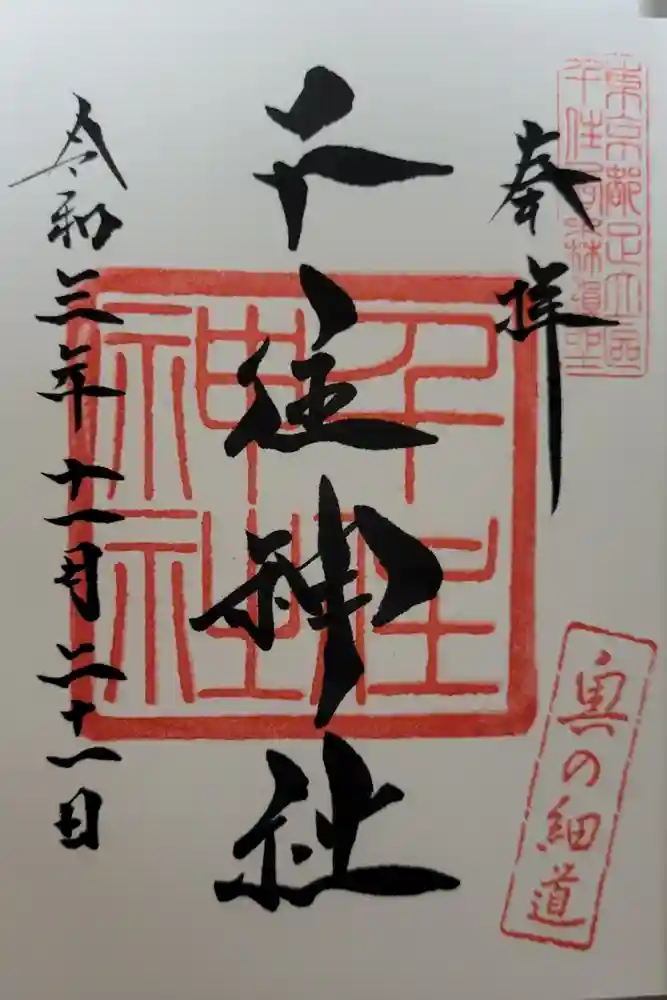 東京都足立区
千住
奉拝
奥の細道
千住神社
千住
神社
令和三年十一月二十一日